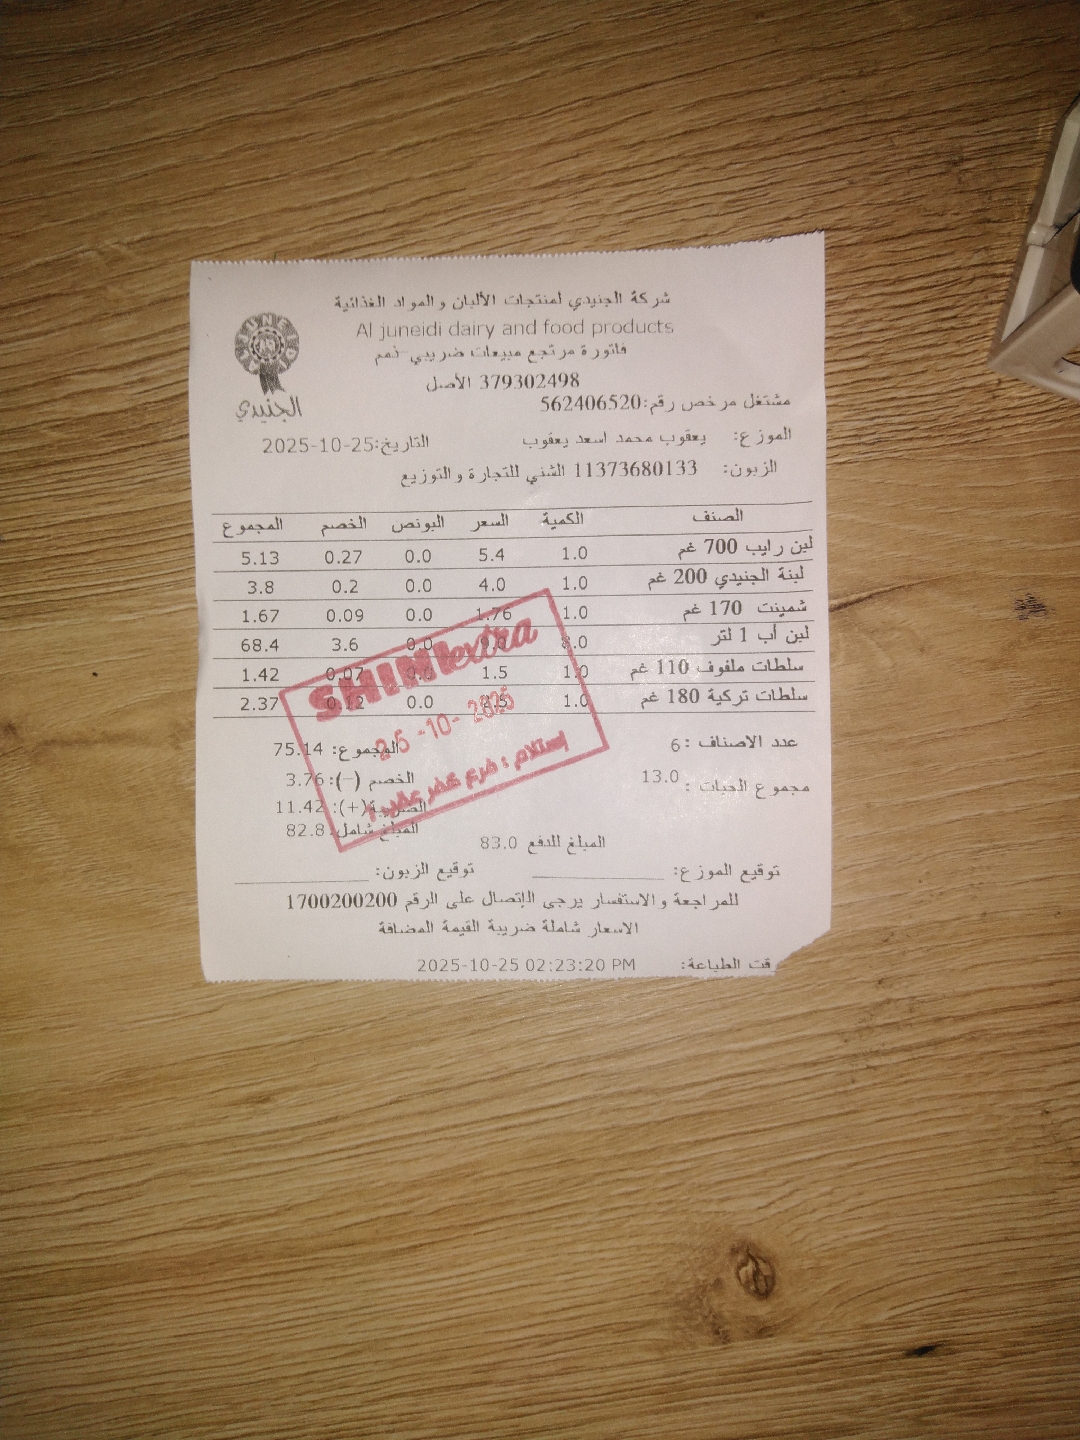 شركة الجنيدي لمنتجات الألبان والمواد الغذائية
Al juneidi dairy and food products
JUNEIDI
الجنيدي
فاتورة مرتجع مبيعات ضريبي-ذمم
379302498 الأصل
مشتغل مرخص رقم:562406520
الموزع: يعقوب محمد اسعد يعقوب التاريخ:2025-10-25
الزبون: 11373680133 الشني للتجارة والتوزيع
الصنف الكمية السعر البونص الخصم المجموع
لبن رايب 700 غم 1.0 5.4 0.0 0.27 5.13
لبنة الجنيدي 200 غم 1.0 4.0 0.0 0.2 3.8
شمينت 170 غم 1.0 1.76 0.0 0.09 1.67
لبن أب 1 لتر 8.0 9.0 0.0 3.6 68.4
سلطات ملفوف 110 غم 1.0 1.5 0.0 0.07 1.42
سلطات تركية 180 غم 1.0 2.5 0.0 0.12 2.37
SHINI extra
25-10-2025
إستلام : فرع كفر عقب
عدد الاصناف : 6 المجموع: 75.14
مجموع الحبات : 13.0 الخصم (-): 3.76
الضريبة(+): 11.42
المبلغ شامل: 82.8
المبلغ للدفع 83.0
توقيع الموزع: توقيع الزبون:
للمراجعة والاستفسار يرجى الإتصال على الرقم 1700200200
الاسعار شاملة ضريبة القيمة المضافة
قت الطباعة: 2025-10-25 02:23:20 PM